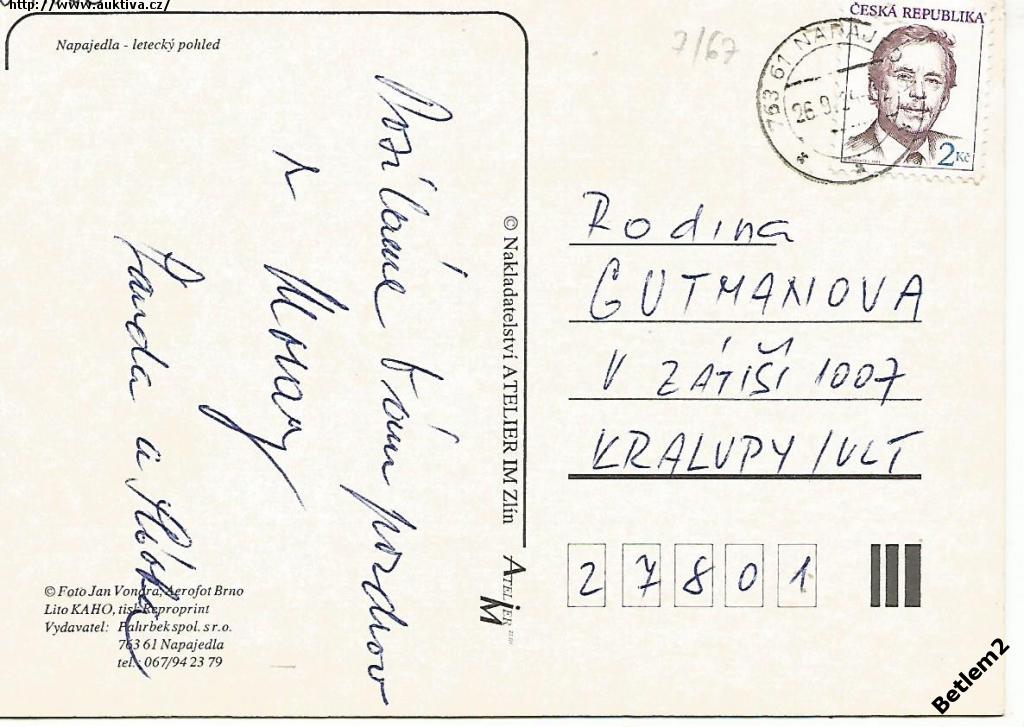 http://www.auktiva.cz/
Napajedla - letecký pohled
7/67
763 61 NAPAJ
26.9.
ČESKÁ REPUBLIKA
2 Kč
Posíláme Vám pozdrav
z Moravy
a
© Nakladatelství ATELIER IM Zlín
ATELIER IM
Rodina
GUTMANOVA
V ZÁTIŠÍ 1007
KRALUPY/VLT
27801
© Foto Jan Vondra, Aerofot Brno
Lito KAHO, tisk Reproprint
Vydavatel: Fahrbek spol. s r. o.
763 61 Napajedla
tel.: 067/94 23 79
Betlem2